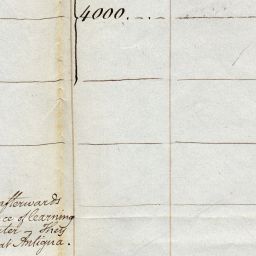 4000. . .
afterwards
ce of learning
ter, They
at Antigua.